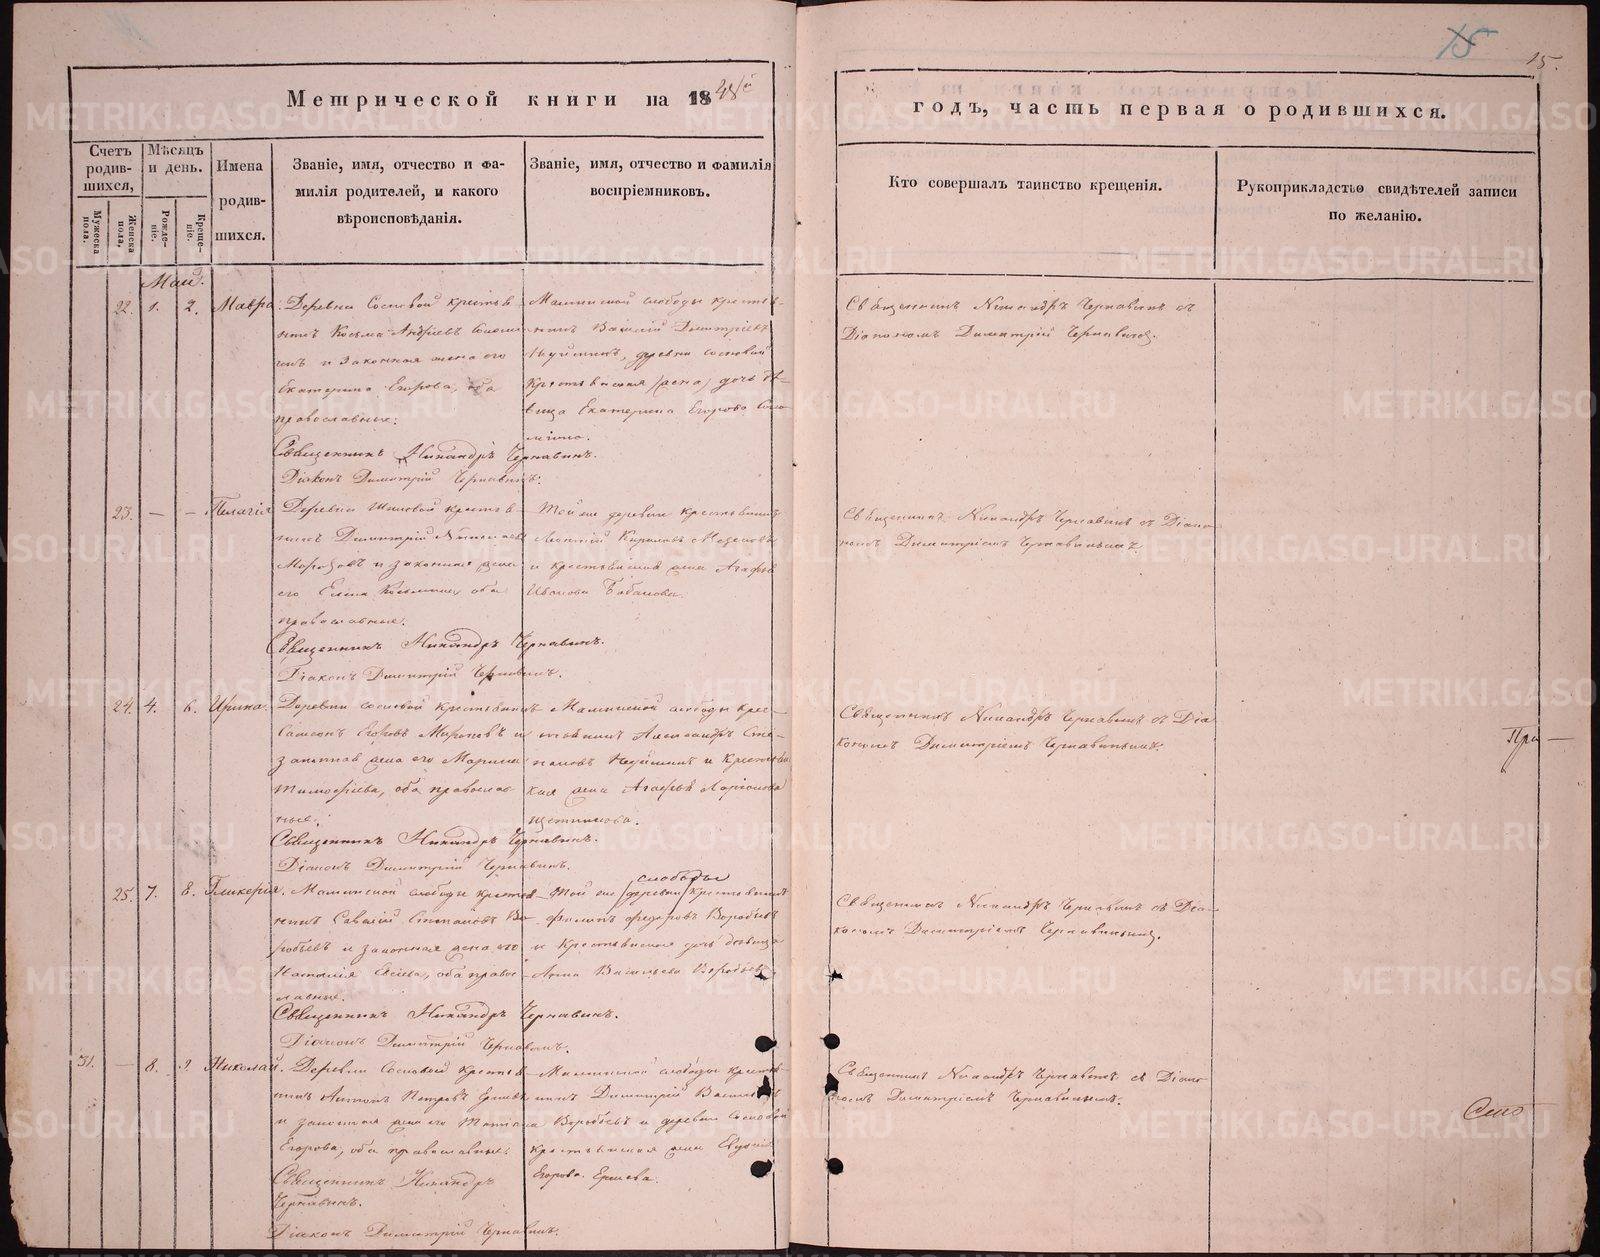 15
15.
Метрической книги на 1848й
годъ, часть первая о родившихся.
Счетъ родив-шихся,
Мужеска пола.
Женска пола,
Мѣсяцъ и день.
Рожде-ніе.
Креще-ніе.
Имена
родив-
шихся.
Званіе, имя, отчество и фа-
милія родителей, и какого
вѣроисповѣданія.
Званіе, имя, отчество и фамилія
воспріемниковъ.
Кто совершалъ таинство крещенія.
Рукоприкладство свидѣтелей записи
по желанію.
Маій.
22. 1. 2. Мавра.
Деревни Сосновой крестья-
нинъ Козьма Андреевъ
и законная жена его
Екатерина Егорова, оба
православные.
Священникъ Никандръ Чернавинъ.
Діаконъ Димитрій Чернавинъ.
слободы крестья-
нинъ Василій Димитріевъ
деревни сосновой
крестьянская (жена) дочь дѣ-
вица Екатерина Егорова
Священникъ Никандръ Чернавинъ съ
Діакономъ Димитрій Чернавинъ.
23. — — Пелагія
Деревни крестья-
нинъ Димитрій
Морозовъ и законная жена
его Елена оба
православные.
Священникъ Никандръ Чернавинъ.
Діаконъ Димитрій Чернавинъ.
Той же деревни крестьянинъ
Кириловъ
и крестьянская жена Агафья
Иванова
Священникъ Никандръ Чернавинъ съ Діако-
номъ Димитріемъ Чернавинымъ.
24. 4. 6. Ирина.
Деревни сосновой крестьянинъ
Самсонъ Егоровъ Мироновъ и
законная жена его Марина
Тимофеева, оба православ-
ные.
Священникъ Никандръ Чернавинъ.
Діаконъ Димитрій Чернавинъ.
слободы крес-
тьянинъ Александръ Сте-
пановъ и крестьян-
ская жена Агафья Ларіонова
Священникъ Никандръ Чернавинъ съ Діа-
кономъ Димитріемъ Чернавинымъ.
При—
25. 7. 8. Гликерія.
слободы крестья-
нинъ Савватій Степановъ Во-
робьевъ и законная жена его
Наталія оба право-
славные.
Священникъ Никандръ Чернавинъ.
Діаконъ Димитрій Чернавинъ.
слободы
Той же (деревни) крестьянинъ
Филипъ Федоровъ Воробьевъ
и крестьянская дочь дѣвица
Анна Васильева Воробьева.
Священникъ Никандръ Чернавинъ съ Діа-
кономъ Димитріемъ Чернавинымъ.
31. — 8. 9. Николай.
Деревни Сосновой крестья-
нинъ Антонъ Петровъ
и законная жена его Татіана
Егорова, оба православные.
Священникъ Никандръ
Чернавинъ.
Діаконъ Димитрій Чернавинъ.
слободы крестья-
нинъ Димитрій Васильевъ
Воробьевъ и деревни Сосновой
крестьянская жена Евдокія
Егорова Ершева.
Священникъ Никандръ Чернавинъ съ Діако-
номъ Димитріемъ Чернавинымъ.
METRIKI.GASO-URAL.RU